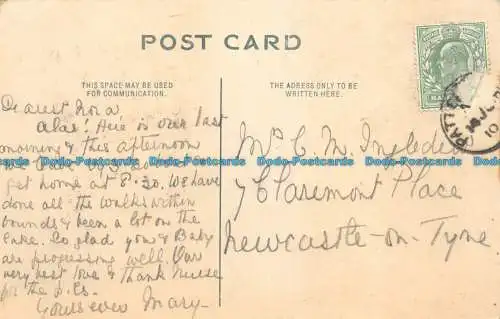 POST CARD
THIS SPACE MAY BE USED
FOR COMMUNICATION.
THE ADRESS ONLY TO BE
WRITTEN HERE.
Dearest Nora
Alas! Here is our last
morning & this afternoon
we
get home at 8.30. We have
done all the walks within
bounds & been a lot on the
Lake. So glad you & Baby
are progressing well. Our
very best love & thank nurse
for the p.cs.
Yours ever Mary-
Mrs C. M. Ingledew
7 Claremont Place
Newcastle-on-Tyne
PATTER